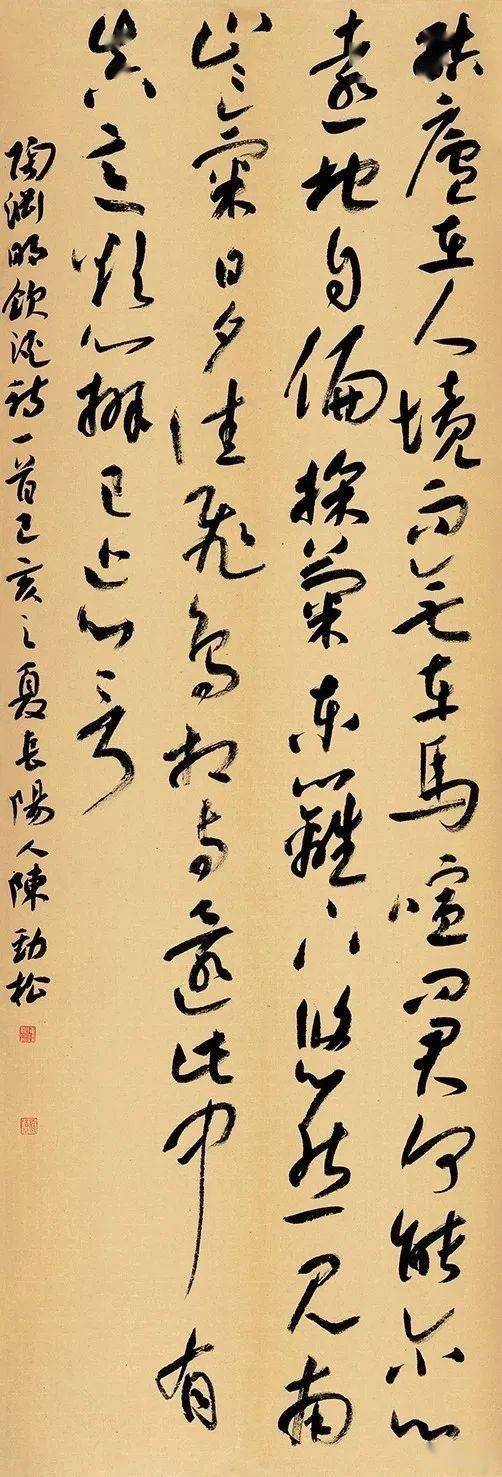 結廬在人境而無車馬喧問君何能尔心
遠地自偏採菊東籬下悠然見南
山〻氣日夕佳飛鳥相與還此中有
真意欲辨已忘言
陶淵明飲酒詩一首己亥之夏長陽人陳勁松